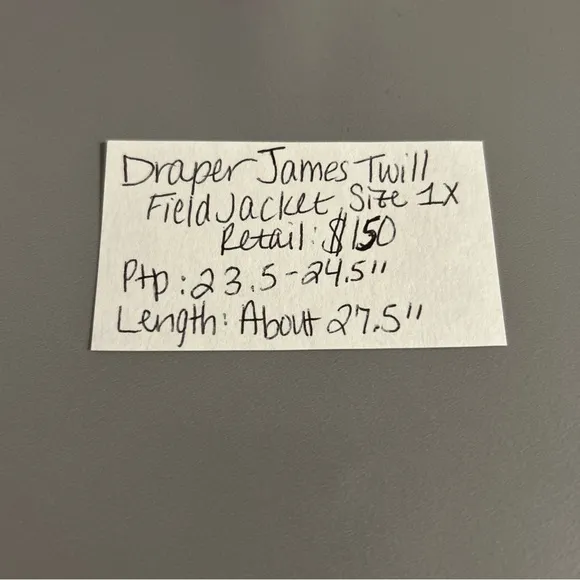 Draper James Twill
Field Jacket, Size 1X
Retail: $150
Ptp: 23.5-24.5"
Length: About 27.5"